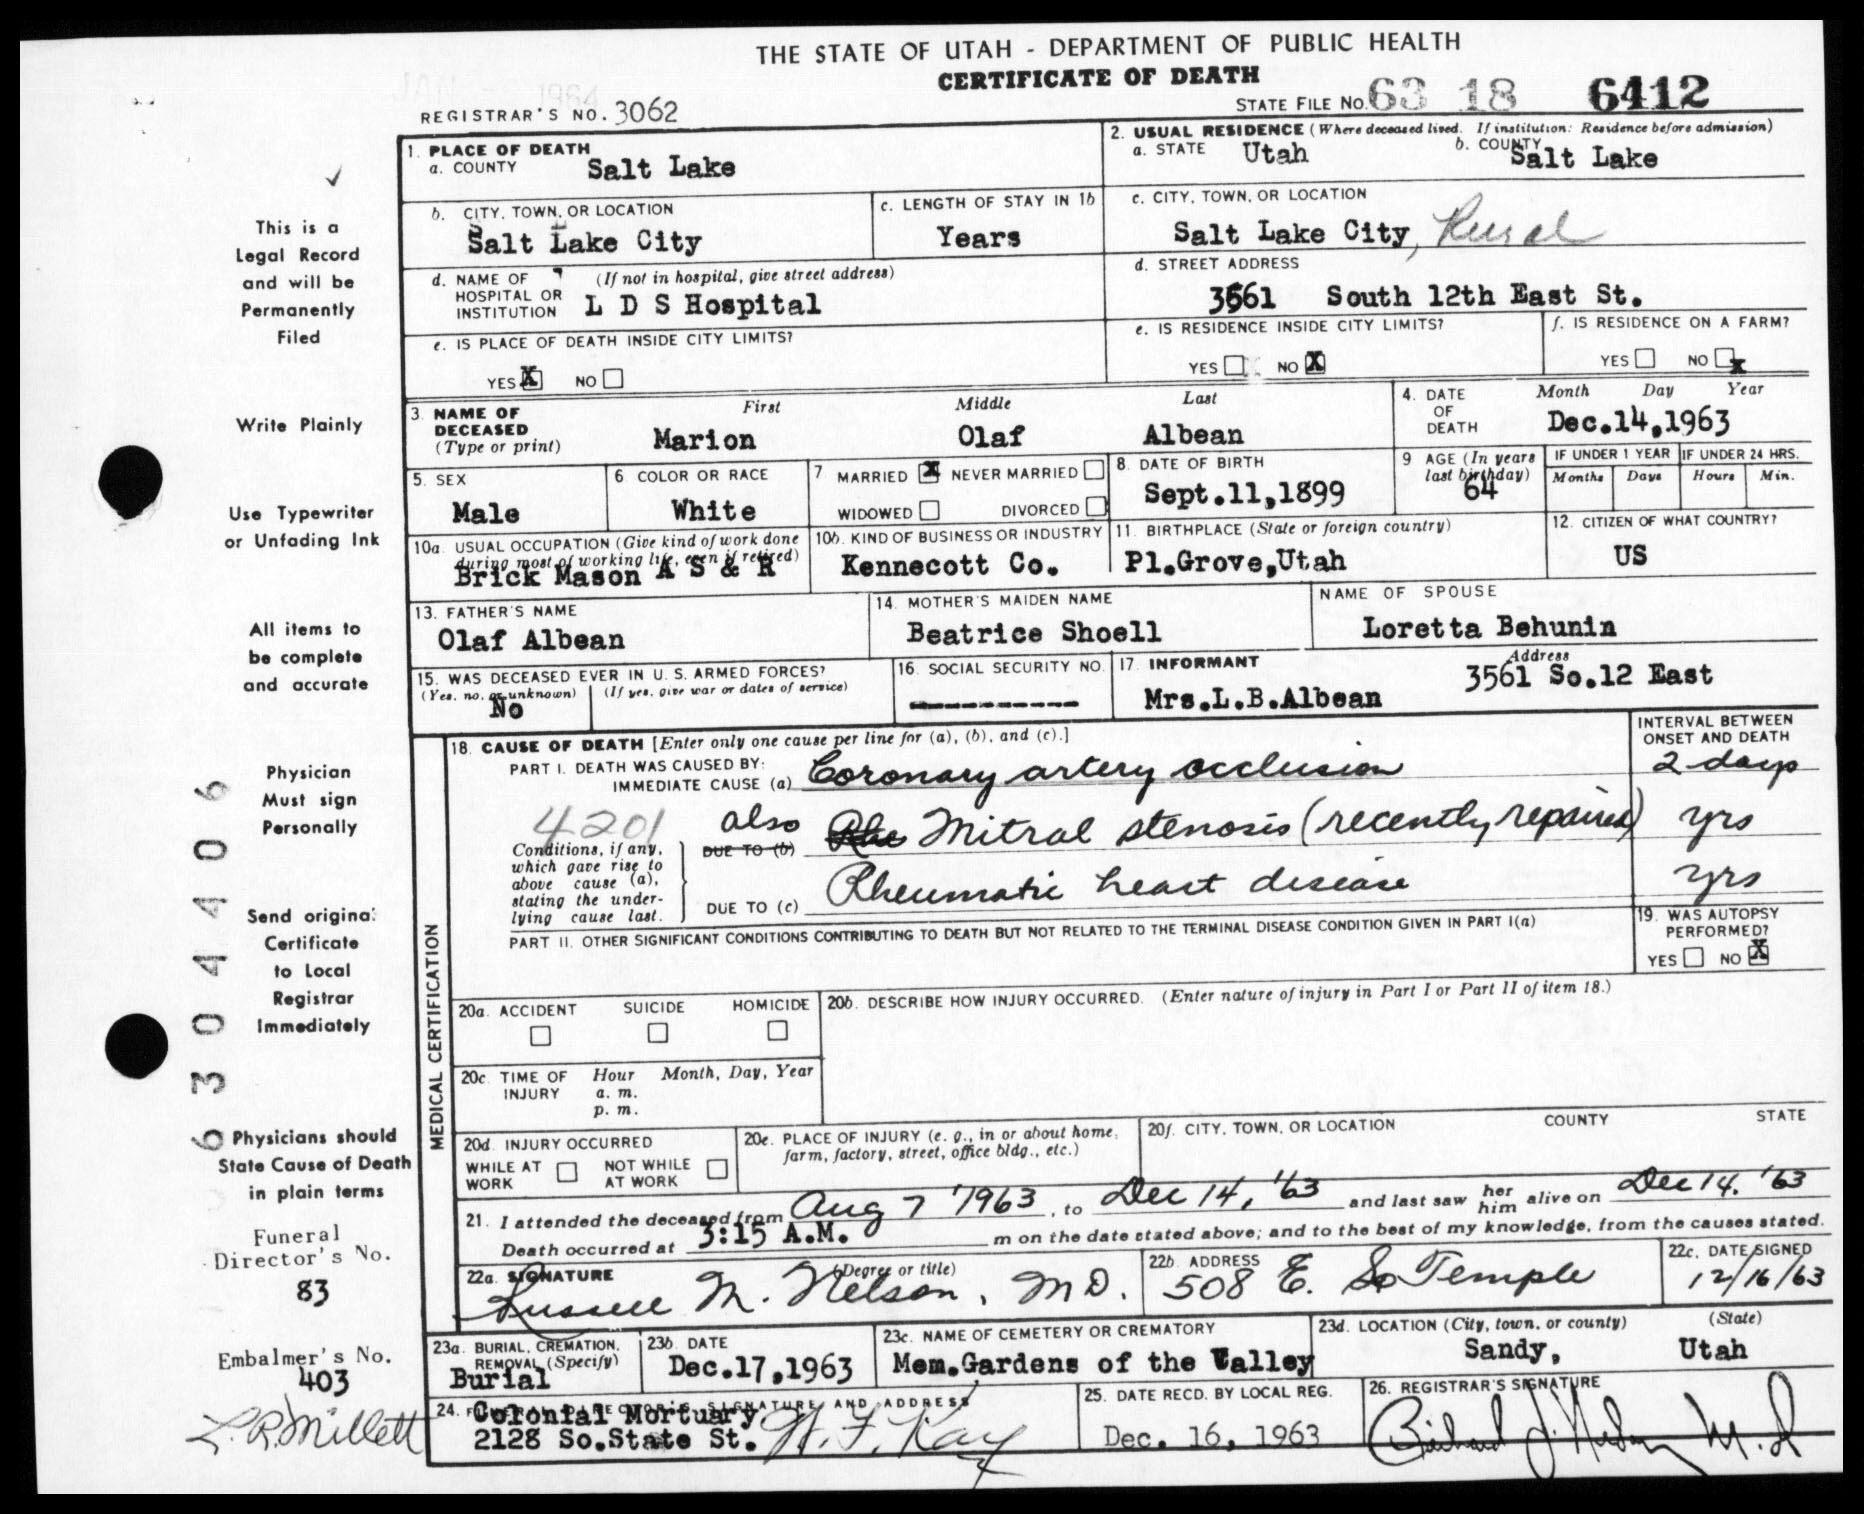 THE STATE OF UTAH - DEPARTMENT OF PUBLIC HEALTH
CERTIFICATE OF DEATH
REGISTRAR'S NO. 3062
STATE FILE NO. 63 18 6412
1. PLACE OF DEATH
a. COUNTY Salt Lake
2. USUAL RESIDENCE (Where deceased lived. If institution: Residence before admission)
a. STATE Utah b. COUNTY Salt Lake
b. CITY, TOWN, OR LOCATION Salt Lake City
c. LENGTH OF STAY IN 1b Years
c. CITY, TOWN, OR LOCATION Salt Lake City, Rural
d. NAME OF HOSPITAL OR INSTITUTION (If not in hospital, give street address) L D S Hospital
d. STREET ADDRESS 3561 South 12th East St.
e. IS PLACE OF DEATH INSIDE CITY LIMITS?
YES X NO
e. IS RESIDENCE INSIDE CITY LIMITS?
YES NO X
f. IS RESIDENCE ON A FARM?
YES NO X
3. NAME OF DECEASED (Type or print)
First Middle Last
Marion Olaf Albean
4. DATE OF DEATH Month Day Year
Dec.14,1963
5. SEX Male
6. COLOR OR RACE White
7 MARRIED X NEVER MARRIED
WIDOWED DIVORCED
8. DATE OF BIRTH Sept.11,1899
9 AGE (In years last birthday) 64
IF UNDER 1 YEAR Months Days
IF UNDER 24 HRS. Hours Min.
10a. USUAL OCCUPATION (Give kind of work done during most of working life, even if retired)
Brick Mason A S & R
10b. KIND OF BUSINESS OR INDUSTRY Kennecott Co.
11. BIRTHPLACE (State or foreign country) Pl.Grove,Utah
12. CITIZEN OF WHAT COUNTRY? US
13. FATHER'S NAME Olaf Albean
14. MOTHER'S MAIDEN NAME Beatrice Shoell
NAME OF SPOUSE Loretta Behunin
15. WAS DECEASED EVER IN U. S. ARMED FORCES?
(Yes, no, or unknown) (If yes, give war or dates of service)
No
16. SOCIAL SECURITY NO. ----------
17. INFORMANT Address
Mrs.L.B.Albean 3561 So.12 East
MEDICAL CERTIFICATION
18. CAUSE OF DEATH [Enter only one cause per line for (a), (b), and (c).]
INTERVAL BETWEEN ONSET AND DEATH
PART I. DEATH WAS CAUSED BY:
IMMEDIATE CAUSE (a) Coronary artery occlusion 2 days
4201
Conditions, if any, which gave rise to above cause (a), stating the underlying cause last.
also DUE TO (b) Rhe Mitral stenosis (recently repaired) yrs
DUE TO (c) Rheumatic heart disease yrs
PART II. OTHER SIGNIFICANT CONDITIONS CONTRIBUTING TO DEATH BUT NOT RELATED TO THE TERMINAL DISEASE CONDITION GIVEN IN PART I(a)
19. WAS AUTOPSY PERFORMED?
YES NO X
20a. ACCIDENT SUICIDE HOMICIDE
20b. DESCRIBE HOW INJURY OCCURRED. (Enter nature of injury in Part I or Part II of item 18.)
20c. TIME OF INJURY Hour Month, Day, Year
a. m.
p. m.
20d. INJURY OCCURRED
WHILE AT WORK NOT WHILE AT WORK
20e. PLACE OF INJURY (e. g., in or about home, farm, factory, street, office bldg., etc.)
20f. CITY, TOWN, OR LOCATION COUNTY STATE
21. I attended the deceased from Aug 7 1963, to Dec 14, '63 and last saw her him alive on Dec 14. '63
Death occurred at 3:15 A.M. m on the date stated above; and to the best of my knowledge, from the causes stated.
22a. SIGNATURE (Degree or title)
Russell M. Nelson, MD.
22b. ADDRESS 508 E. So Temple
22c. DATE SIGNED 12/16/63
23a. BURIAL, CREMATION, REMOVAL (Specify) Burial
23b. DATE Dec.17,1963
23c. NAME OF CEMETERY OR CREMATORY Mem.Gardens of the Valley
23d. LOCATION (City, town, or county) (State)
Sandy, Utah
24. FUNERAL DIRECTOR'S SIGNATURE AND ADDRESS
Colonial Mortuary
2128 So.State St. W. F. Kay
25. DATE RECD. BY LOCAL REG. Dec. 16, 1963
26. REGISTRAR'S SIGNATURE
This is a
Legal Record
and will be
Permanently
Filed
Write Plainly
Use Typewriter
or Unfading Ink
All items to
be complete
and accurate
Physician
Must sign
Personally
Send original
Certificate
to Local
Registrar
Immediately
6304406
Physicians should
State Cause of Death
in plain terms
Funeral
Director's No.
83
Embalmer's No.
403
L. R. Millett